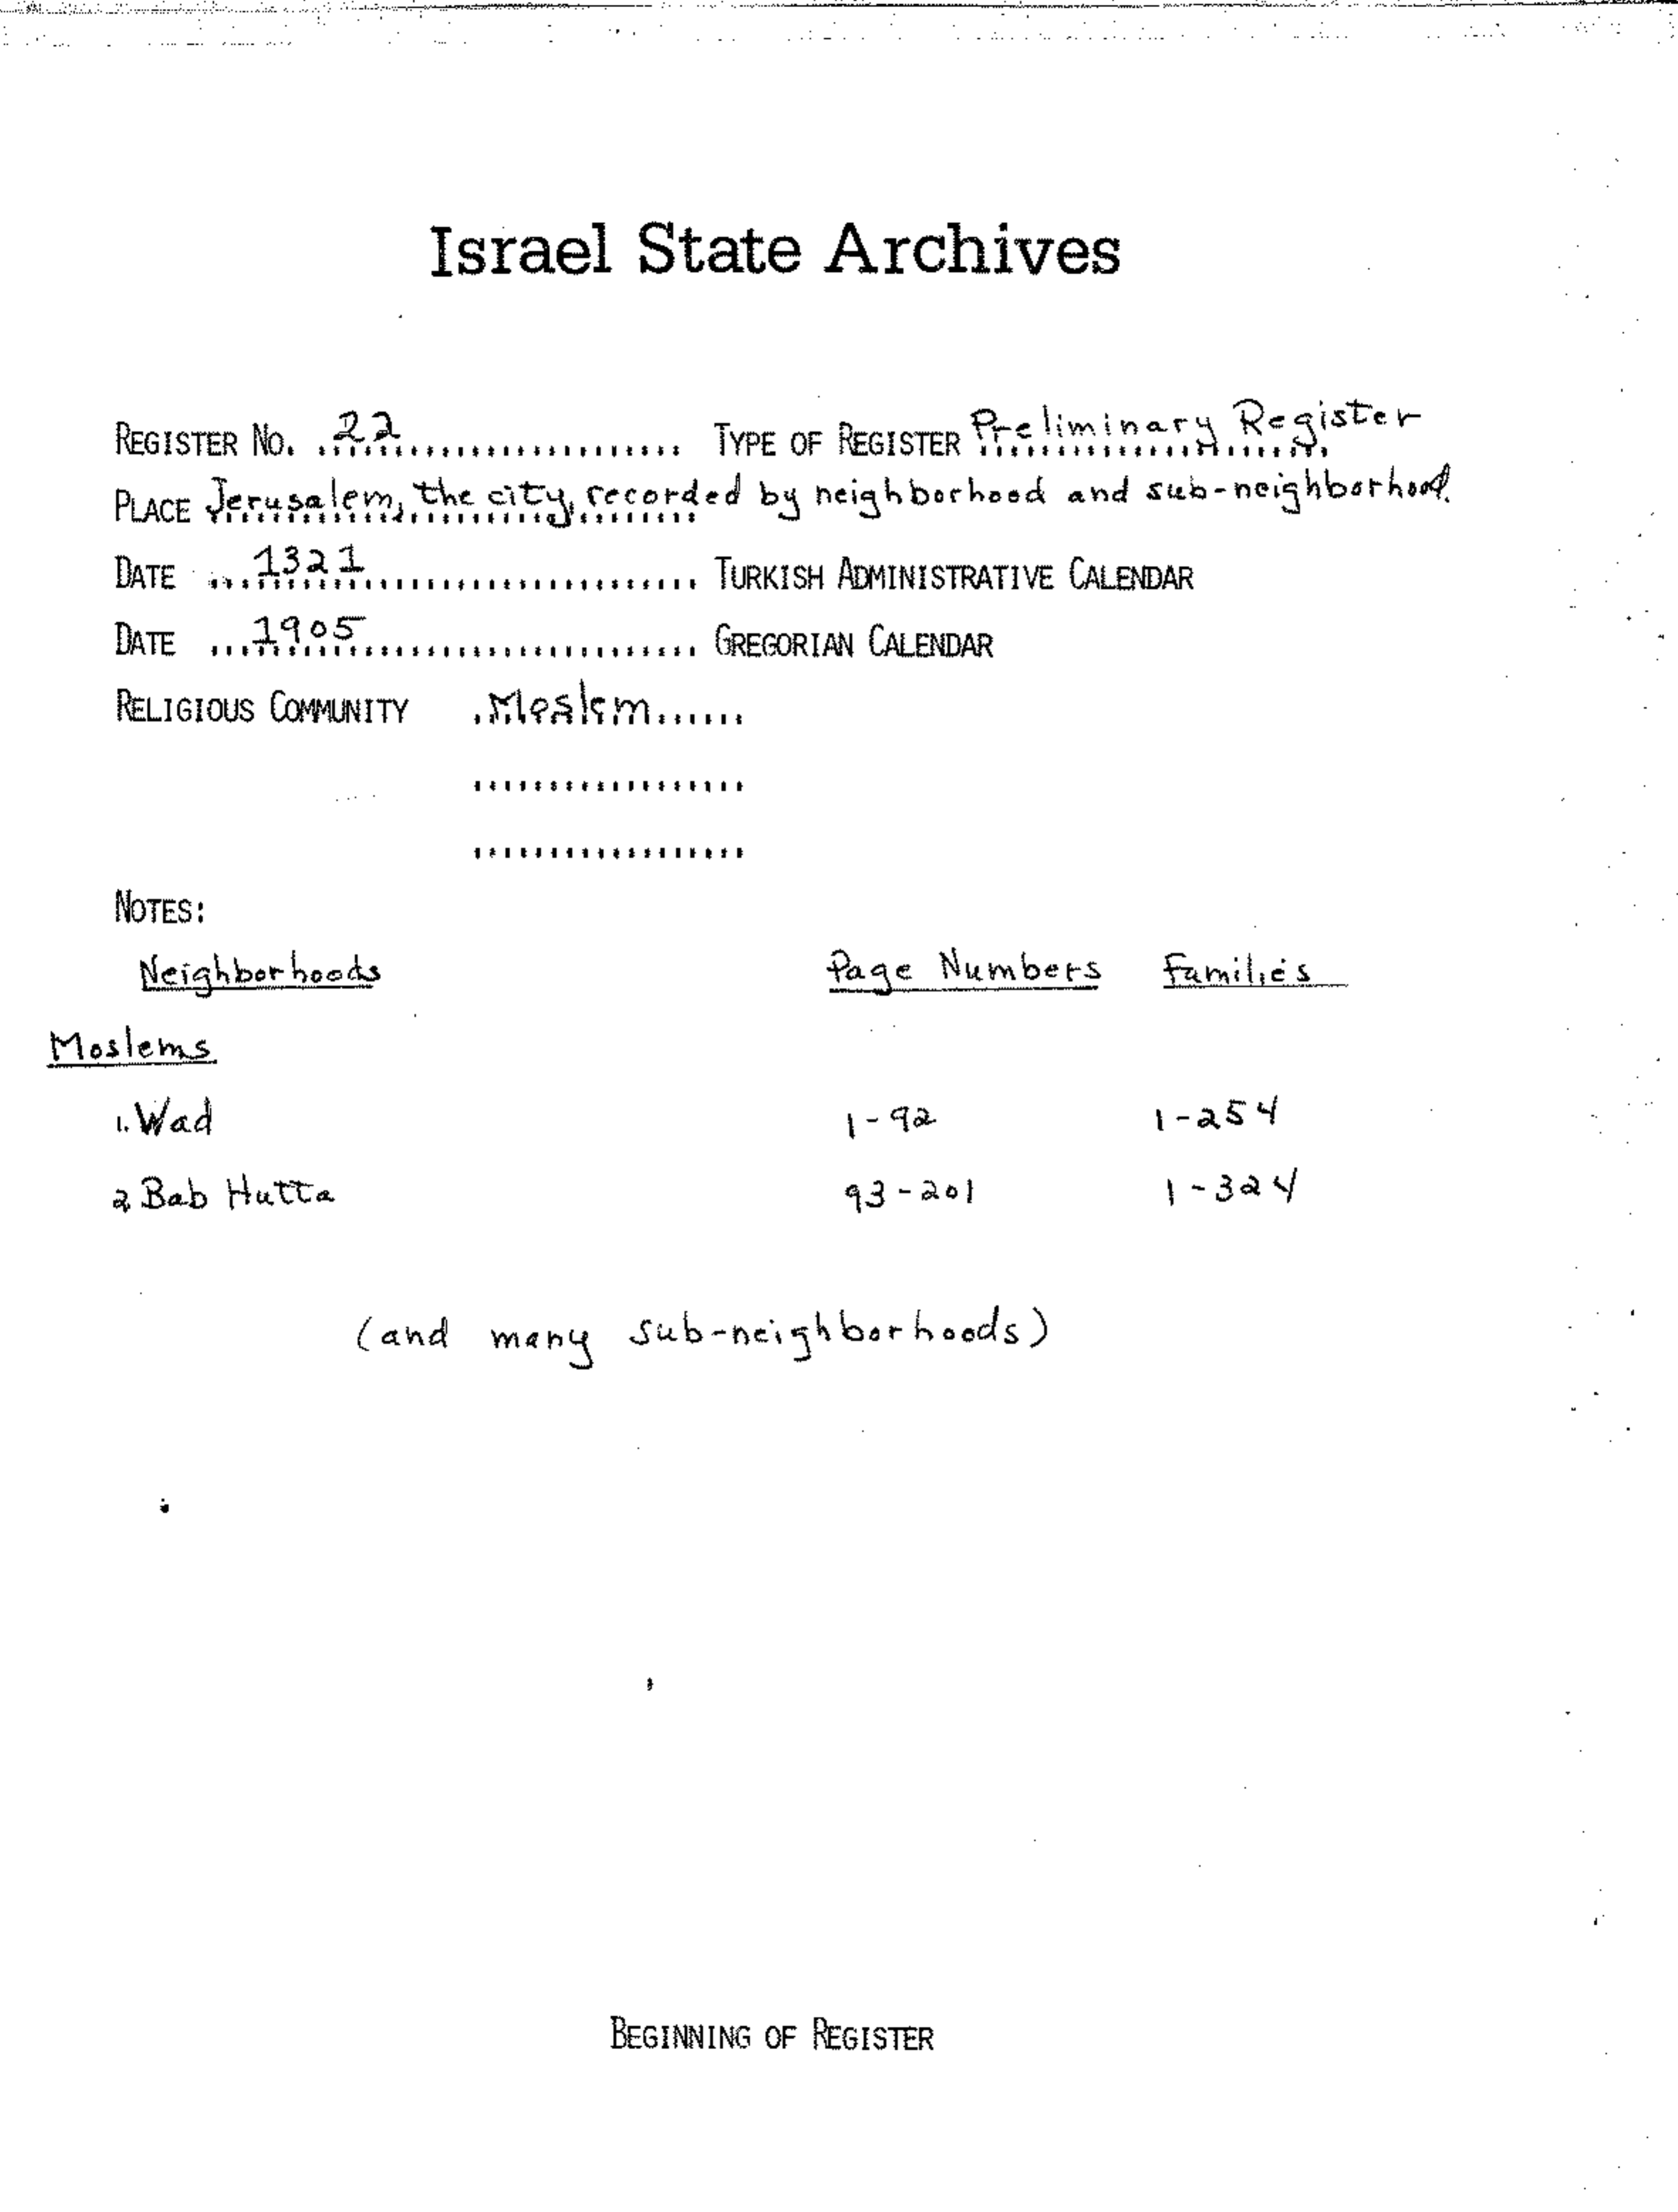 Israel State Archives
REGISTER NO. 22 TYPE OF REGISTER Preliminary Register
PLACE Jerusalem, the city, recorded by neighborhood and sub-neighborhood.
DATE 1321 TURKISH ADMINISTRATIVE CALENDAR
DATE 1905 GREGORIAN CALENDAR
RELIGIOUS COMMUNITY Moslem
NOTES:
Neighborhoods Page Numbers Families
Moslems
1. Wad 1-92 1-254
2. Bab Hutta 93-201 1-324
(and many sub-neighborhoods)
BEGINNING OF REGISTER